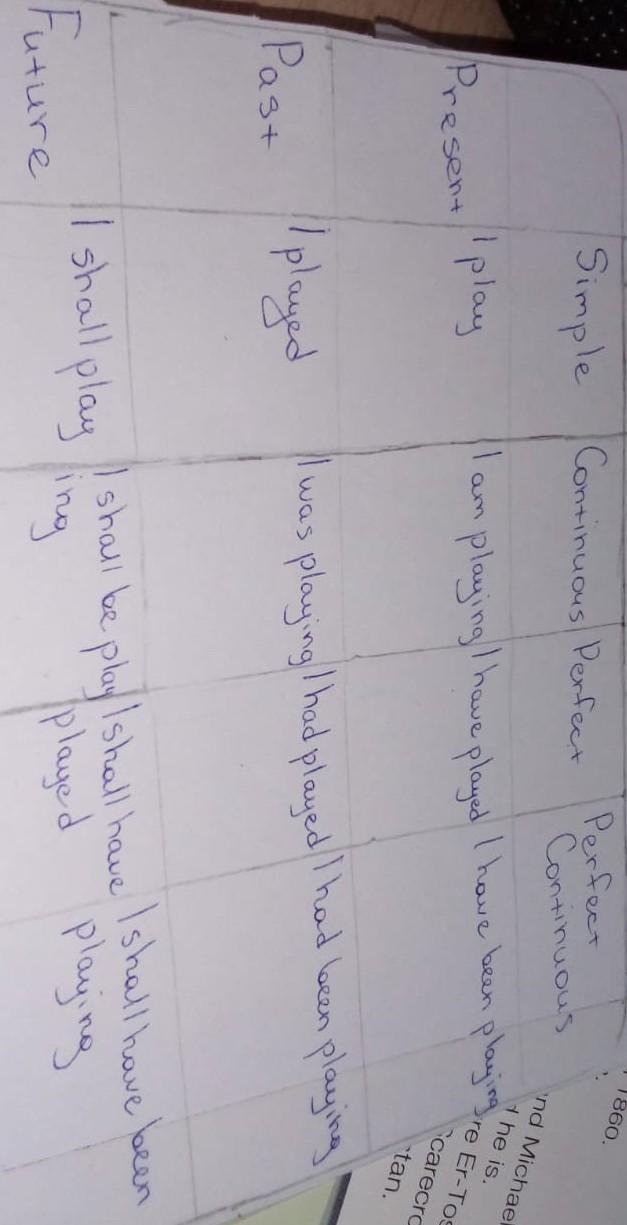 Simple Continuous Perfect Perfect
Continuous
Present I play I am playing I have played I have been playing
Past I played I was playing I had played I had been playing
Future I shall play I shall be play I shall have I shall have been
ing played playing
1860.
Michael
he is.
re Er-Tos
tan.